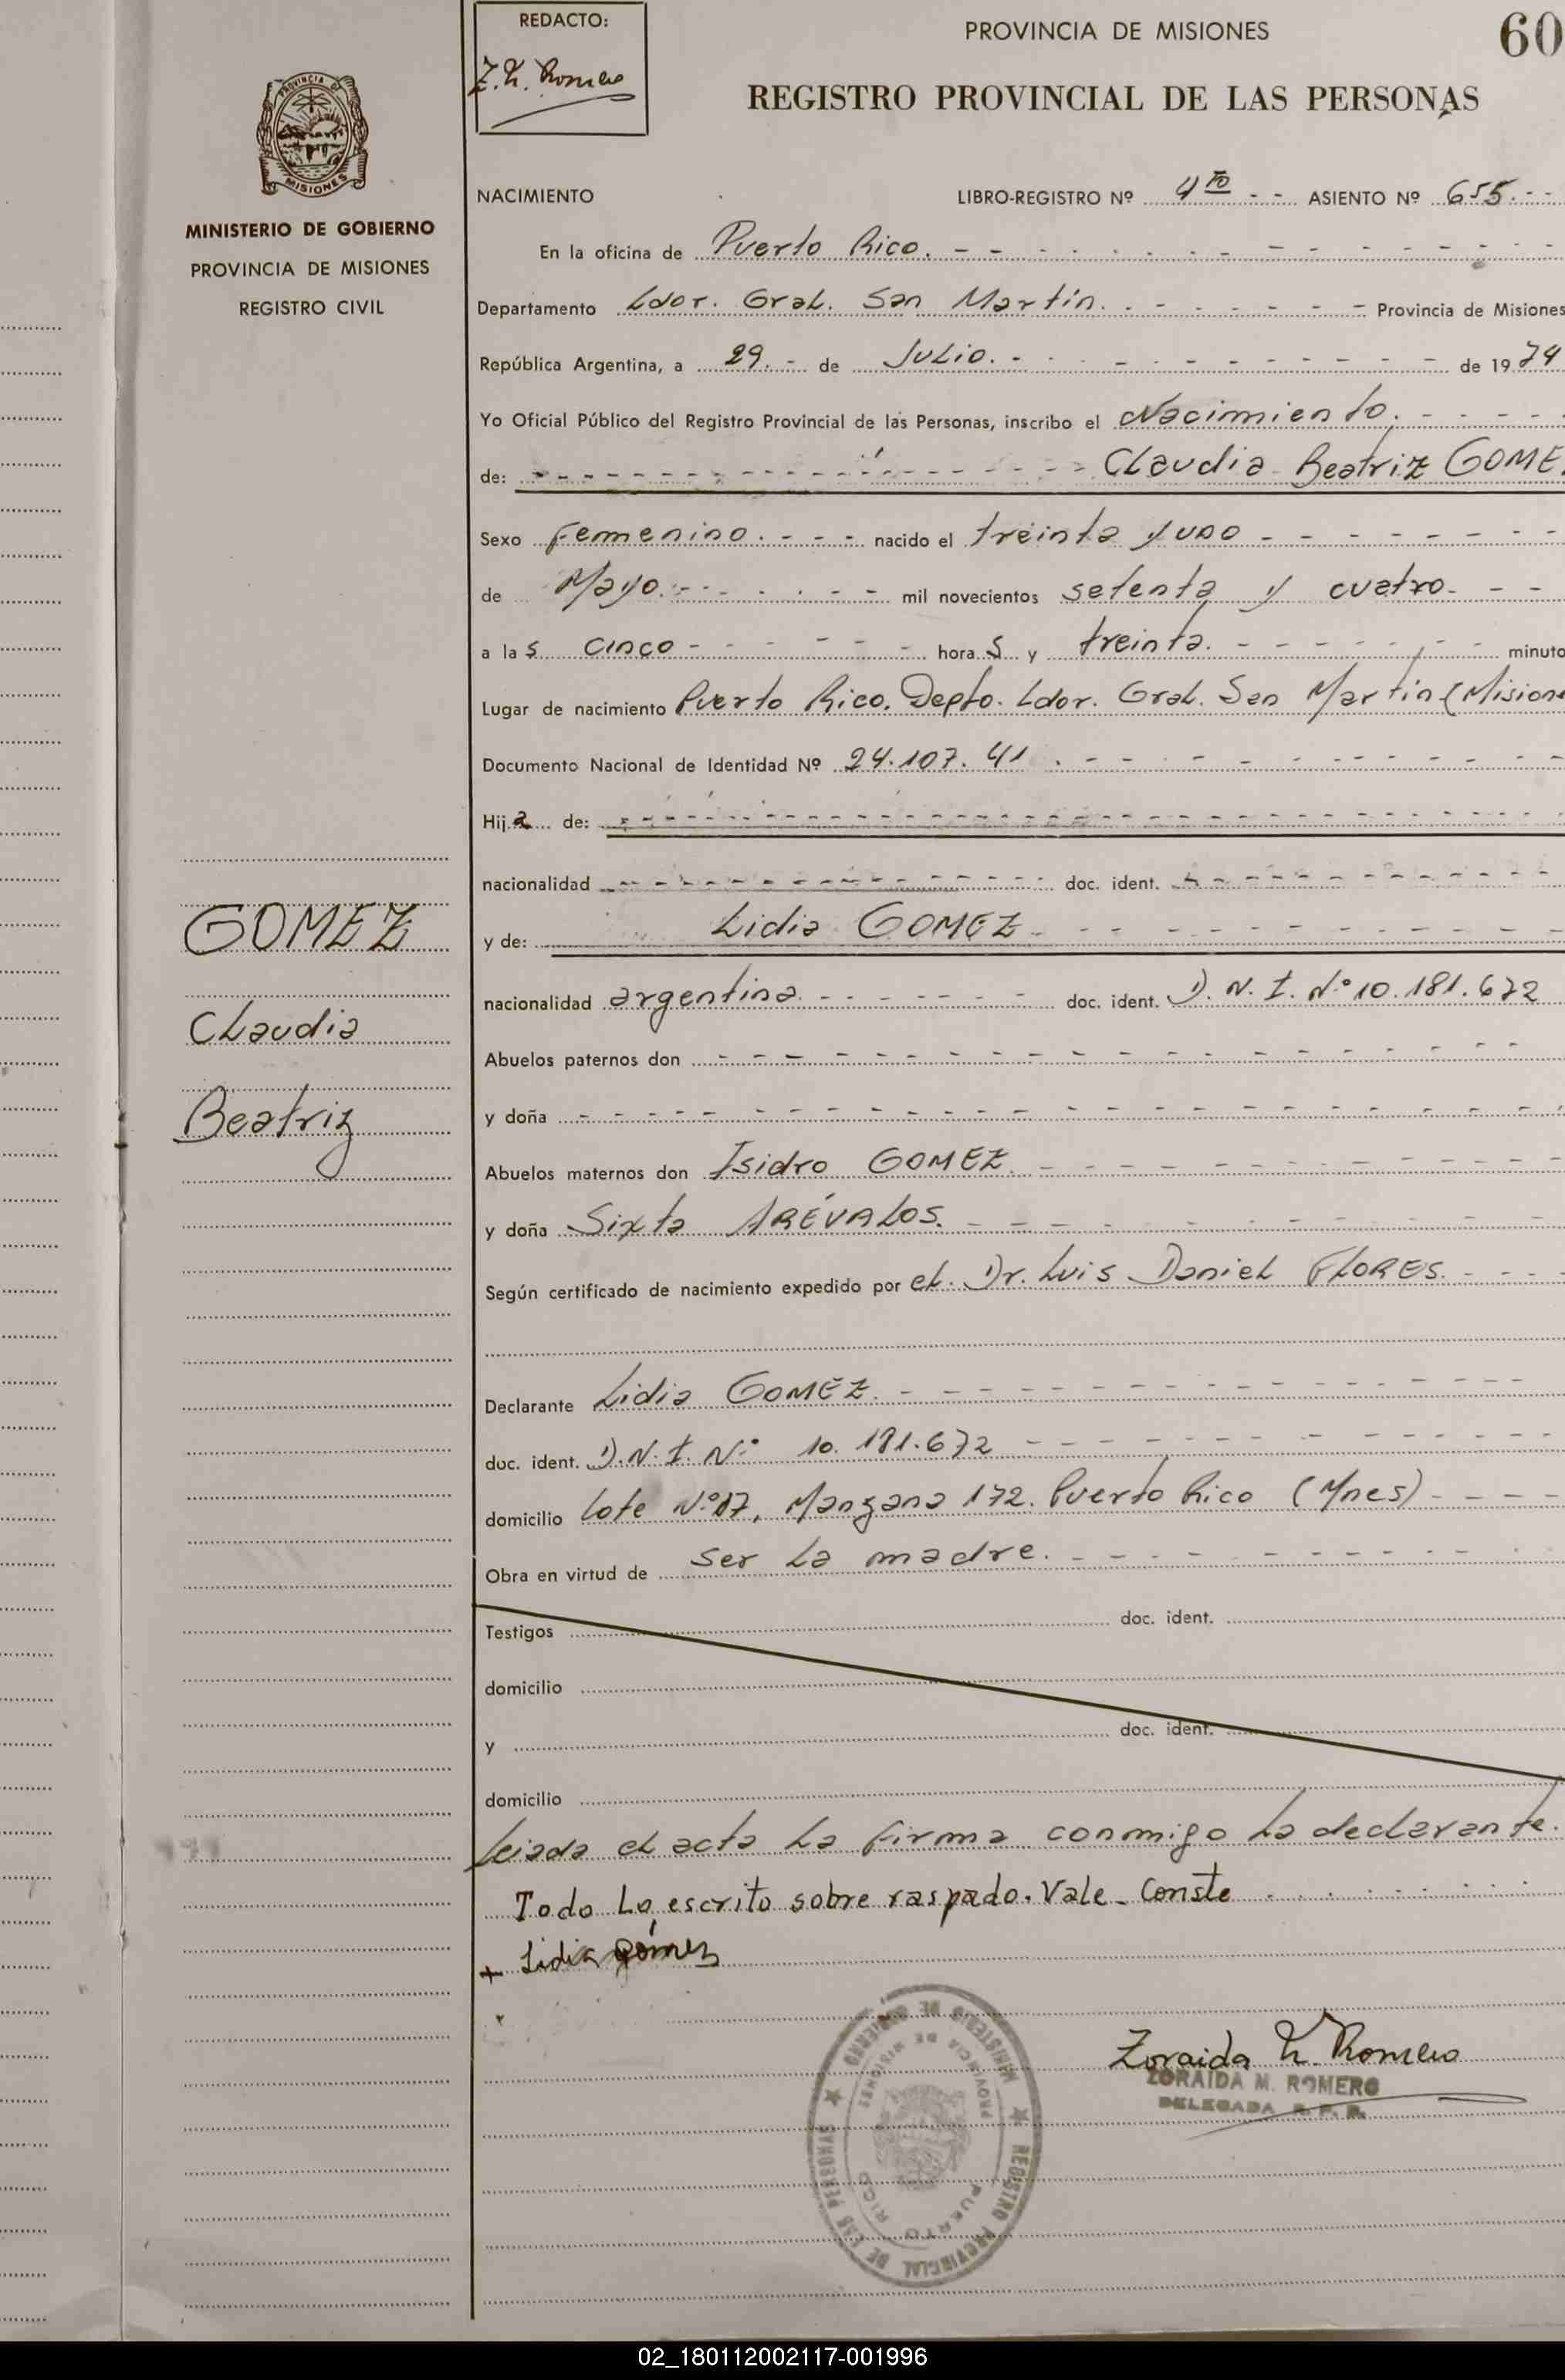 REDACTO:
Z. M. Romero
PROVINCIA DE MISIONES
60
REGISTRO PROVINCIAL DE LAS PERSONAS
PROVINCIA DE
MISIONES
MINISTERIO DE GOBIERNO
PROVINCIA DE MISIONES
REGISTRO CIVIL
NACIMIENTO LIBRO-REGISTRO Nº 4to - - ASIENTO Nº 655. - -
En la oficina de Puerto Rico.
Departamento Ldor. Gral. San Martín. Provincia de Misiones
República Argentina, a 29. - de Julio. - de 1974
Yo Oficial Público del Registro Provincial de las Personas, inscribo el Nacimiento.
de: Claudia Beatriz GOME
Sexo Femenino. - - - nacido el treinta y uno
de Mayo. mil novecientos setenta y cuatro.
a las cinco horas y treinta. minuto
Lugar de nacimiento Puerto Rico. Depto. Ldor. Gral. San Martín (Mision
Documento Nacional de Identidad Nº 24.107.41
Hija de:
nacionalidad doc. ident.
y de: Lidia GOMEZ
nacionalidad argentina. doc. ident. D. N. I. Nº 10.181.672
Abuelos paternos don
y doña
Abuelos maternos don Isidro GOMEZ.
y doña Sixta ARÉVALOS.
Según certificado de nacimiento expedido por el Dr. Luis Daniel FLORES.
Declarante Lidia GOMEZ.
doc. ident. D. N. I. Nº 10.181.672
domicilio Lote Nº 17, Manzana 172. Puerto Rico (Mnes)
Obra en virtud de ser la madre.
Testigos doc. ident.
domicilio
y doc. ident.
domicilio
Leiada el acta la firma conmigo la declarante.
Todo lo escrito sobre raspado. Vale - Conste
+ Lidia gómez
GOMEZ
Claudia
Beatriz
Zoraida M. Romero
ZORAIDA M. ROMERO
DELEGADA R. P. P.
MINISTERIO DE GOBIERNO
REGISTRO PROVINCIAL DE LAS PERSONAS
PROVINCIA DE MISIONES
PUERTO RICO
02_180112002117-001996